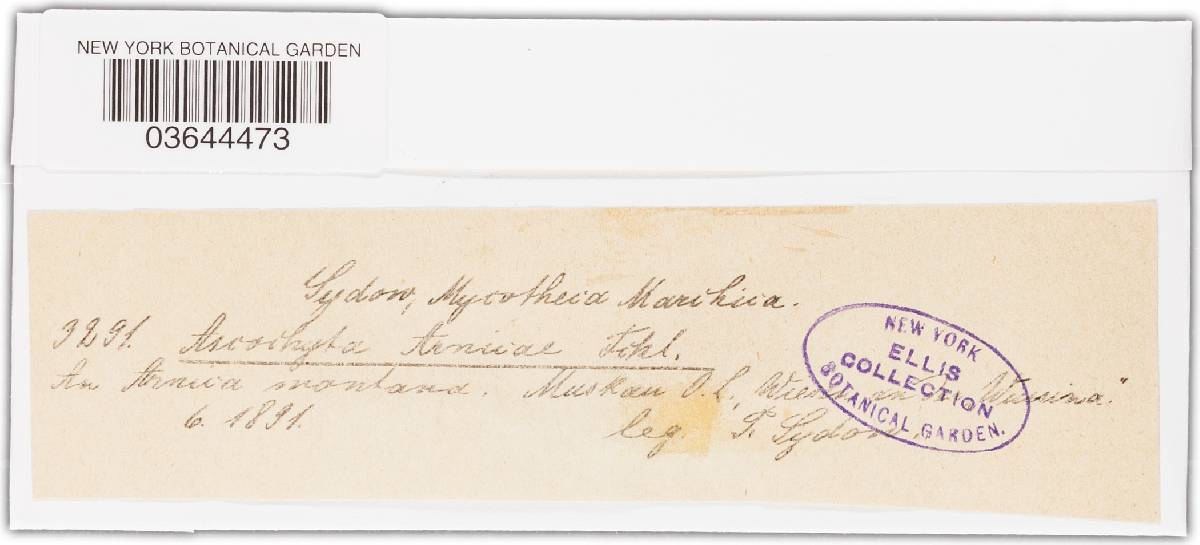 NEW YORK BOTANICAL GARDEN
03644473
Sydow, Mycotheca Marchica.
3291. Ascochyta Arnicae Fckl.
An Arnica montana. Muskau O. L., Wiesen
6. 1891. leg. P. Sydow.
NEW YORK
ELLIS
COLLECTION
BOTANICAL GARDEN.